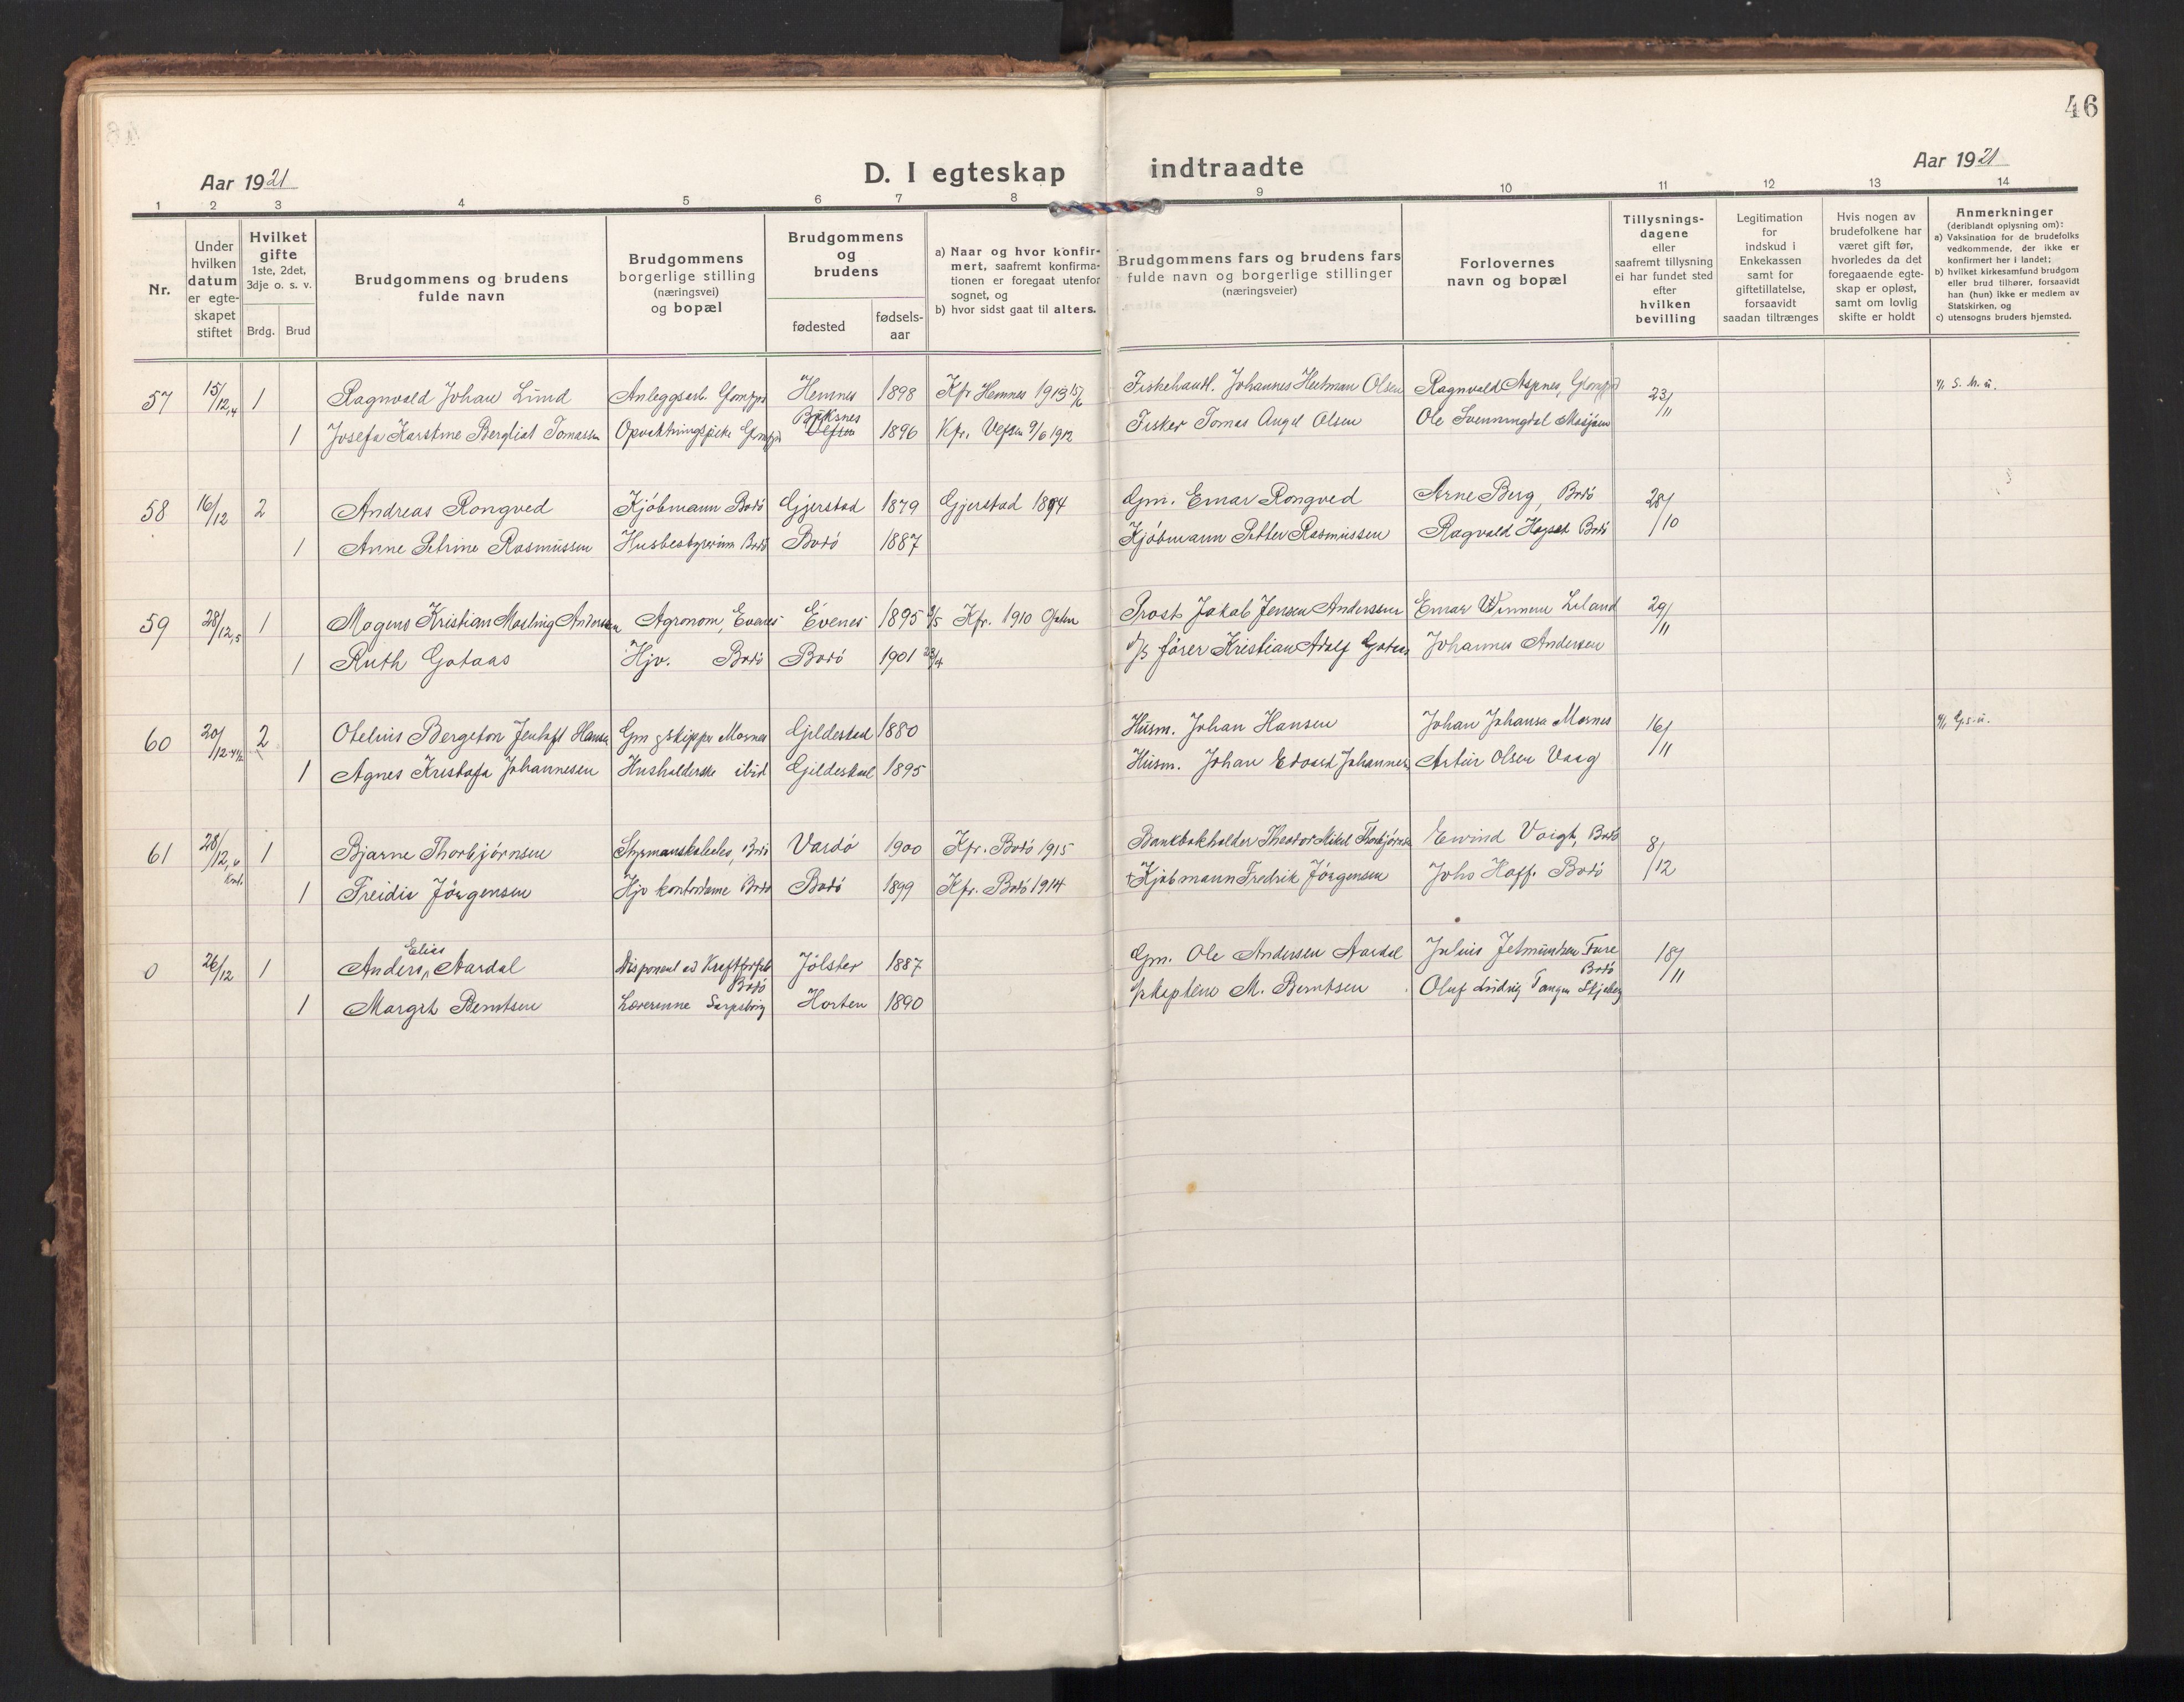 46
Aar 1921
D. I egteskap indtraadte
Aar 1921
1 2 3 4 5 6 7 8 9 10 11 12 13 14
Nr.
Under hvilken datum er egteskapet stiftet
Hvilket gifte 1ste, 2det, 3dje o. s. v.
Brdg. Brud
Brudgommens og brudens fulde navn
Brudgommens borgerlige stilling (næringsvei) og bopæl
Brudgommens og brudens
fødested
fødsels-aar
a) Naar og hvor konfir-
mert, saafremt konfirma-
tionen er foregaat utenfor
sognet, og
b) hvor sidst gaat til alters.
Brudgommens fars og brudens fars
fulde navn og borgerlige stillinger
(næringsveier)
Forlovernes
navn og bopæl
Tillysnings-
dagene
eller
saafremt tillysning
ei har fundet sted
efter
hvilken
bevilling
Legitimation
for
indskud i
Enkekassen
samt for
giftetillatelse,
forsaavidt
saadan tiltrænges
Hvis nogen av
brudefolkene har
været gift før,
hvorledes da det
foregaaende egte-
skap er opløst,
samt om lovlig
skifte er holdt
Anmerkninger
(deriblandt oplysning om):
a) Vaksination for de brudefolks
vedkommende, der ikke er
konfirmert her i landet;
b) hvilket kirkesamfund brudgom
eller brud tilhører, forsaavidt
han (hun) ikke er medlem av
Statskirken, og
c) utensogns bruders hjemsted.
57 15/12,4 1 Ragnvald Johan Lund Anleggsarb. Glomfjd Hemnes 1898 Kfr Hemnes 1913 15/6 Fiskehandl. Johannes Heitman Olsen Ragnvald Aspnes, Glomfjd 23/11 S. h. u.
1 Josefa Karstine Bergliot Tomassen Opvartningspike Glomfjd Buksnes Vefsn 1896 Kfr. Vefsn 9/6 1912 Fisker Tomas Angel Olsen Ole Svenningdal Mosjøen
58 16/12 2 Andreas Rongved Kjøbmann Bodø Gjerstad 1879 Gjerstad 1894 Gm. Einar Rongved Arne Berg, Bodø 28/10
1 Anne Petrine Rasmussen Husbestyrerinne Bodø Bodø 1887 Kjøbmann Petter Rasmussen Ragvald Bodø
59 28/12,5 1 Mogens Kristian Andersen Agronom, Evenes Evenes 1895 Kfr. 1910 Ofoten Prost Jakob Jensen Anderssen Einar Leland 29/11
1 Ruth Gotaas Hjv. Bodø Bodø 1901 23/4 d/s fører Kristian Adolf Gotaas Johannes Andersen
60 20/12 2 Oteluis Bergeton Jentoft Hansen Gm skipper Mornes Gildeskaal 1880 Husm. Johan Hansen Johan Johansen Mornes 16/11
1 Agnes Kristofa Johannesen Husholderske ibid Gildeskaal 1895 Husm. Johan Edvard Johannesen Artur Olsen Vaag
61 28/12,6 1 Bjarne Thorbjørnsen Styrmanskoleelev, Bodø Vardø 1900 Kfr. Bodø 1915 Bankbokholder Theodor Mikal Thorbjørnsen Eivind Voigt, Bodø 8/12
1 Freidis Jørgensen Hjv kontordame Bodø Bodø 1899 Kfr. Bodø 1914 Kjøbmann Fredrik Jørgensen Johs Hoff. Bodø
0 26/12 1 Anders Elias Aardal Disponent Bodø Jølster 1887 Gm. Ole Andersen Aardal Julius Jetmundsen Fure Bodø 18/11
1 Margit Berntsen Lærerinne Sarpsborg Horten 1890 M. Berntsen Oluf Ludvig Tangen Skjeberg